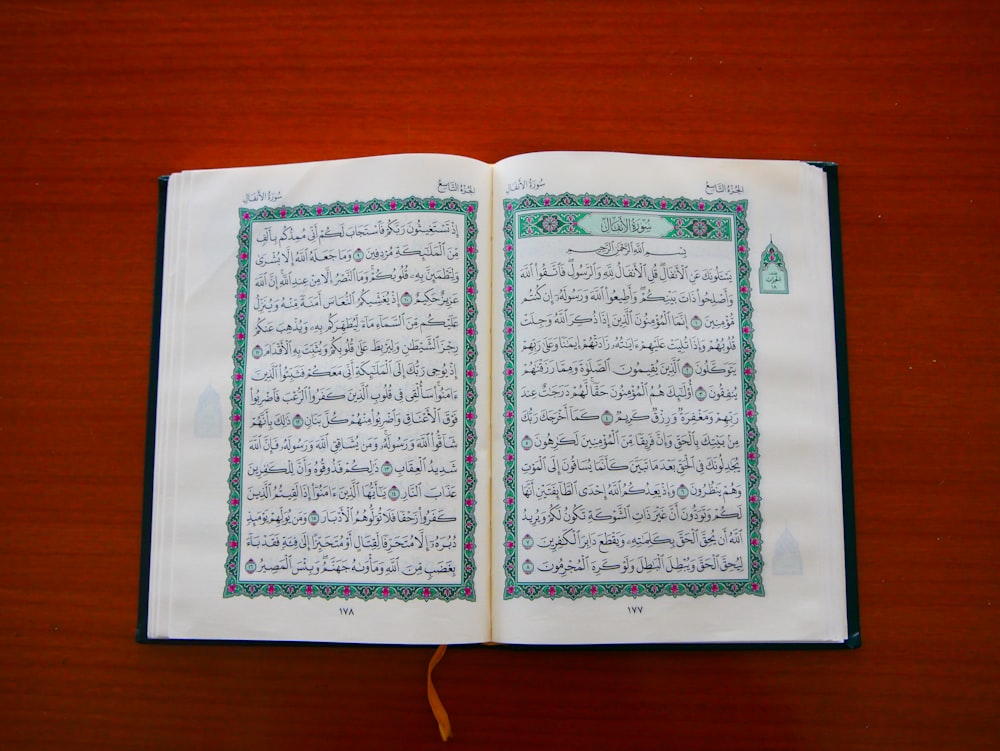 الجزء التاسع
سورة الأنفال
سُورَةُ الأَنفَالِ
بِسْمِ اللَّهِ الرَّحْمَٰنِ الرَّحِيمِ
يَسْـَٔلُونَكَ عَنِ ٱلْأَنفَالِۖ قُلِ ٱلْأَنفَالُ لِلَّهِ وَٱلرَّسُولِۖ فَٱتَّقُوا۟ ٱللَّهَ
وَأَصْلِحُوا۟ ذَاتَ بَيْنِكُمْۖ وَأَطِيعُوا۟ ٱللَّهَ وَرَسُولَهُۥٓ إِن كُنتُم
مُّؤْمِنِينَ ١ إِنَّمَا ٱلْمُؤْمِنُونَ ٱلَّذِينَ إِذَا ذُكِرَ ٱللَّهُ وَجِلَتْ
قُلُوبُهُمْ وَإِذَا تُلِيَتْ عَلَيْهِمْ ءَايَٰتُهُۥ زَادَتْهُمْ إِيمَٰنًا وَعَلَىٰ رَبِّهِمْ
يَتَوَكَّلُونَ ٢ ٱلَّذِينَ يُقِيمُونَ ٱلصَّلَوٰةَ وَمِمَّا رَزَقْنَٰهُمْ
يُنفِقُونَ ٣ أُو۟لَٰٓئِكَ هُمُ ٱلْمُؤْمِنُونَ حَقًّاۚ لَّهُمْ دَرَجَٰتٌ عِندَ
رَبِّهِمْ وَمَغْفِرَةٌ وَرِزْقٌ كَرِيمٌ ٤ كَمَآ أَخْرَجَكَ رَبُّكَ
مِنۢ بَيْتِكَ بِٱلْحَقِّ وَإِنَّ فَرِيقًا مِّنَ ٱلْمُؤْمِنِينَ لَكَٰرِهُونَ ٥
يُجَٰدِلُونَكَ فِى ٱلْحَقِّ بَعْدَ مَا تَبَيَّنَ كَأَنَّمَا يُسَاقُونَ إِلَى ٱلْمَوْتِ
وَهُمْ يَنظُرُونَ ٦ وَإِذْ يَعِدُكُمُ ٱللَّهُ إِحْدَى ٱلطَّآئِفَتَيْنِ أَنَّهَا
لَكُمْ وَتَوَدُّونَ أَنَّ غَيْرَ ذَاتِ ٱلشَّوْكَةِ تَكُونُ لَكُمْ وَيُرِيدُ
ٱللَّهُ أَن يُحِقَّ ٱلْحَقَّ بِكَلِمَٰتِهِۦ وَيَقْطَعَ دَابِرَ ٱلْكَٰفِرِينَ ٧
لِيُحِقَّ ٱلْحَقَّ وَيُبْطِلَ ٱلْبَٰطِلَ وَلَوْ كَرِهَ ٱلْمُجْرِمُونَ ٨
١٧٧
الحزب
١٨
الجزء التاسع
سورة الأنفال
إِذْ تَسْتَغِيثُونَ رَبَّكُمْ فَٱسْتَجَابَ لَكُمْ أَنِّى مُمِدُّكُم بِأَلْفٍ
مِّنَ ٱلْمَلَٰٓئِكَةِ مُرْدِفِينَ ٩ وَمَا جَعَلَهُ ٱللَّهُ إِلَّا بُشْرَىٰ
وَلِتَطْمَئِنَّ بِهِۦ قُلُوبُكُمْۚ وَمَا ٱلنَّصْرُ إِلَّا مِنْ عِندِ ٱللَّهِۚ إِنَّ ٱللَّهَ
عَزِيزٌ حَكِيمٌ ١٠ إِذْ يُغَشِّيكُمُ ٱلنُّعَاسَ أَمَنَةً مِّنْهُ وَيُنَزِّلُ
عَلَيْكُم مِّنَ ٱلسَّمَآءِ مَآءً لِّيُطَهِّرَكُم بِهِۦ وَيُذْهِبَ عَنكُمْ
رِجْزَ ٱلشَّيْطَٰنِ وَلِيَرْبِطَ عَلَىٰ قُلُوبِكُمْ وَيُثَبِّتَ بِهِ ٱلْأَقْدَامَ ١١
إِذْ يُوحِى رَبُّكَ إِلَى ٱلْمَلَٰٓئِكَةِ أَنِّى مَعَكُمْ فَثَبِّتُوا۟ ٱلَّذِينَ
ءَامَنُوا۟ۚ سَأُلْقِى فِى قُلُوبِ ٱلَّذِينَ كَفَرُوا۟ ٱلرُّعْبَ فَٱضْرِبُوا۟
فَوْقَ ٱلْأَعْنَاقِ وَٱضْرِبُوا۟ مِنْهُمْ كُلَّ بَنَانٍ ١٢ ذَٰلِكَ بِأَنَّهُمْ
شَآقُّوا۟ ٱللَّهَ وَرَسُولَهُۥۚ وَمَن يُشَاقِقِ ٱللَّهَ وَرَسُولَهُۥ فَإِنَّ ٱللَّهَ
شَدِيدُ ٱلْعِقَابِ ١٣ ذَٰلِكُمْ فَذُوقُوهُ وَأَنَّ لِلْكَٰفِرِينَ
عَذَابَ ٱلنَّارِ ١٤ يَٰٓأَيُّهَا ٱلَّذِينَ ءَامَنُوٓا۟ إِذَا لَقِيتُمُ ٱلَّذِينَ
كَفَرُوا۟ زَحْفًا فَلَا تُوَلُّوهُمُ ٱلْأَدْبَارَ ١٥ وَمَن يُوَلِّهِمْ يَوْمَئِذٍ
دُبُرَهُۥٓ إِلَّا مُتَحَرِّفًا لِّقِتَالٍ أَوْ مُتَحَيِّزًا إِلَىٰ فِئَةٍ فَقَدْ بَآءَ
بِغَضَبٍ مِّنَ ٱللَّهِ وَمَأْوَىٰهُ جَهَنَّمُۖ وَبِئْسَ ٱلْمَصِيرُ ١٦
١٧٨